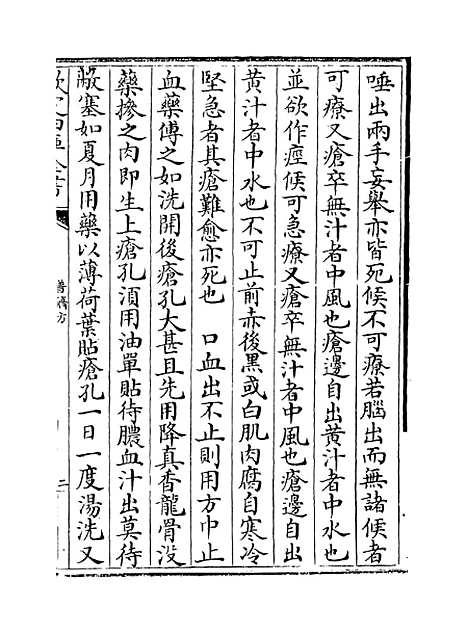 唾出兩手妄舉亦皆死候不可療若腦出而無諸候者
可療又瘡卒無汁者中風也瘡邊自出黃汁者中水也
並欲作痙候可急療又瘡卒無汁者中風也瘡邊自出
黃汁者中水也不可止前赤後黑或白肌肉腐自寒冷
堅急者其瘡難愈亦死也　口血出不止則用方巾止
血藥傅之如洗開後瘡孔大甚且先用降真香龍骨没
藥摻之肉即生上瘡孔湏用油單貼待膿血汁出莫待
蔽塞如夏月用藥以薄荷葉貼瘡孔一日一度湯洗又
欽定四庫全書
普濟方
二